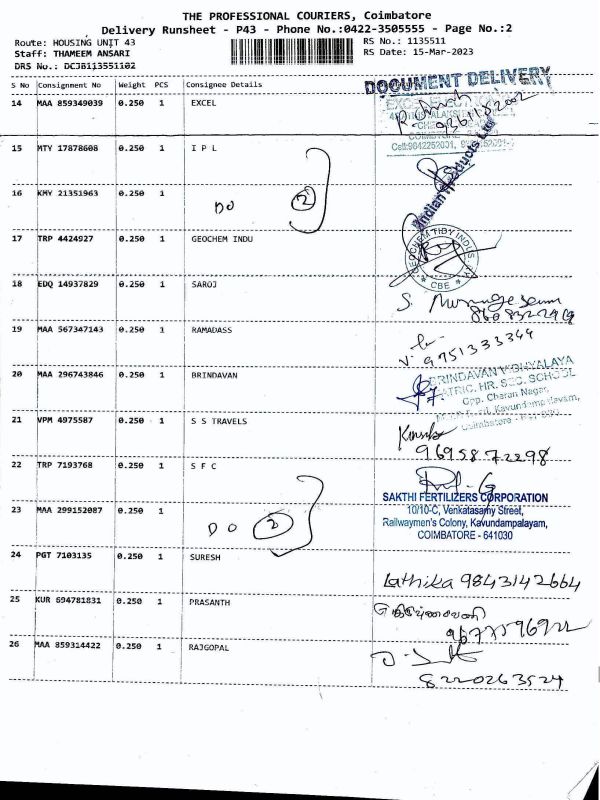 THE PROFESSIONAL COURIERS, Coimbatore
Delivery Runsheet - P43 - Phone No.:0422-3505555 - Page No.:2
Route: HOUSING UNIT 43
Staff: THAMEEM ANSARI
DRS No.: DCJB113551102
RS No.: 1135511
RS Date: 15-Mar-2023
S No Consignment No Weight PCS Consignee Details
DOCUMENT DELIVERY
14 MAA 859349039 0.250 1 EXCEL
15 MTY 17878608 0.250 1 I P L
Indian Products Ltd
16 KMY 21351963 0.250 1
DO 2
17 TRP 4424927 0.250 1 GEOCHEM INDU
GEOCHEM TIDY INDUS
CBE
18 EDQ 14937829 0.250 1 SAROJ
S.
19 MAA 567347143 0.250 1 RAMADASS
9751333344
20 MAA 296743846 0.250 1 BRINDAVAN
BRINDAVAN VIDHYALAYA
MATRIC. HR. SEC. SCHOOL
Opp. Charan Nagar,
Kavundampalayam,
Coimbatore
21 VPM 4975587 0.250 1 S S TRAVELS
9695872298
22 TRP 7193768 0.250 1 S F C
SAKTHI FERTILIZERS CORPORATION
10/10-C, Venkatasamy Street,
Railwaymen's Colony, Kavundampalayam,
COIMBATORE - 641030
23 MAA 299152087 0.250 1
DO 2
24 PGT 7103135 0.250 1 SURESH
Lathika 9843142664
25 KUR 694781831 0.250 1 PRASANTH
26 MAA 859314422 0.250 1 RAJGOPAL
8220263524